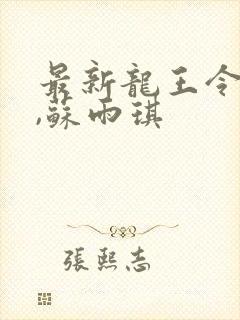 最新龍王令
,蘇雨琪
張熙志